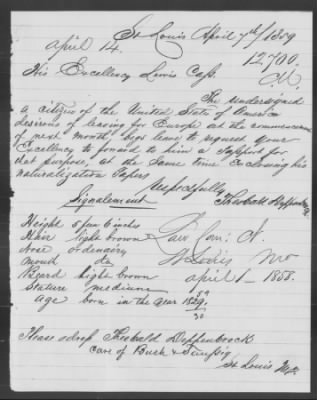 St Louis April 7th / 1859
April 14.
12,700.
His Excellency Lewis Cass.
The undersigned
a citizen of the United State of America
desirous of leaving for Europe at the commencement
of next month, begs leave to request your
Excellency to forward to him a Passport for
dat purpose, at the same time enclosing his
naturalization Papers
Respectfully
Theobald Doppenbroock
Signalement
Height 5 feet 6 inches
Hair light brown
Nose ordinary
mouth do
Beard light brown
Stature medium
age born in the year 1829.
Law Com: Ct.
St Louis Mo
April 1 – 1858.
59
30
Please adress Theobald Doppenbroock
care of Busk &
St Louis Mo.